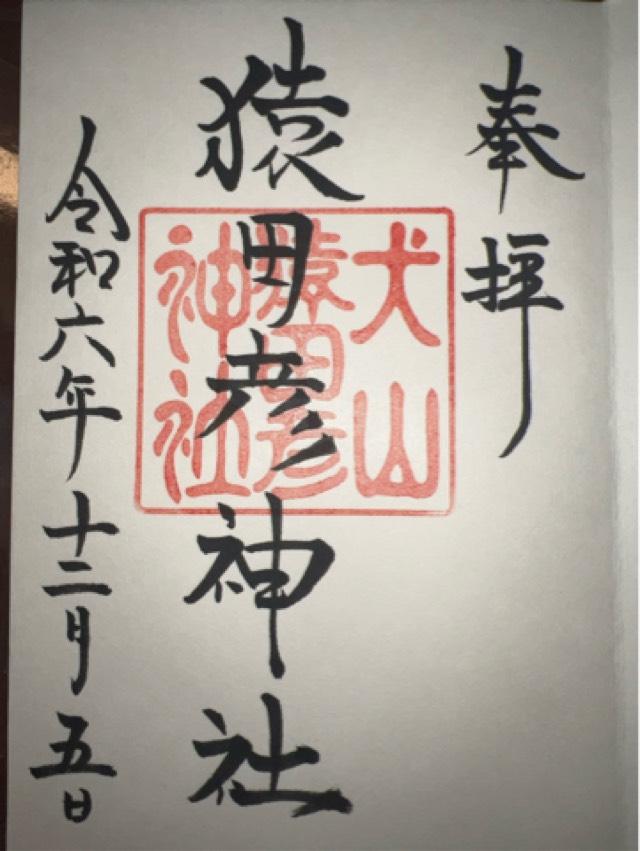 奉拝
犬山
猿田彦
神社
猿田彦神社
令和六年十二月五日